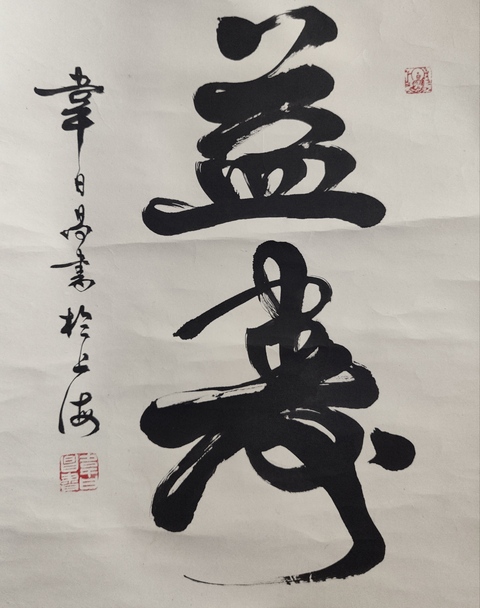 益壽
韋日昌書於上海